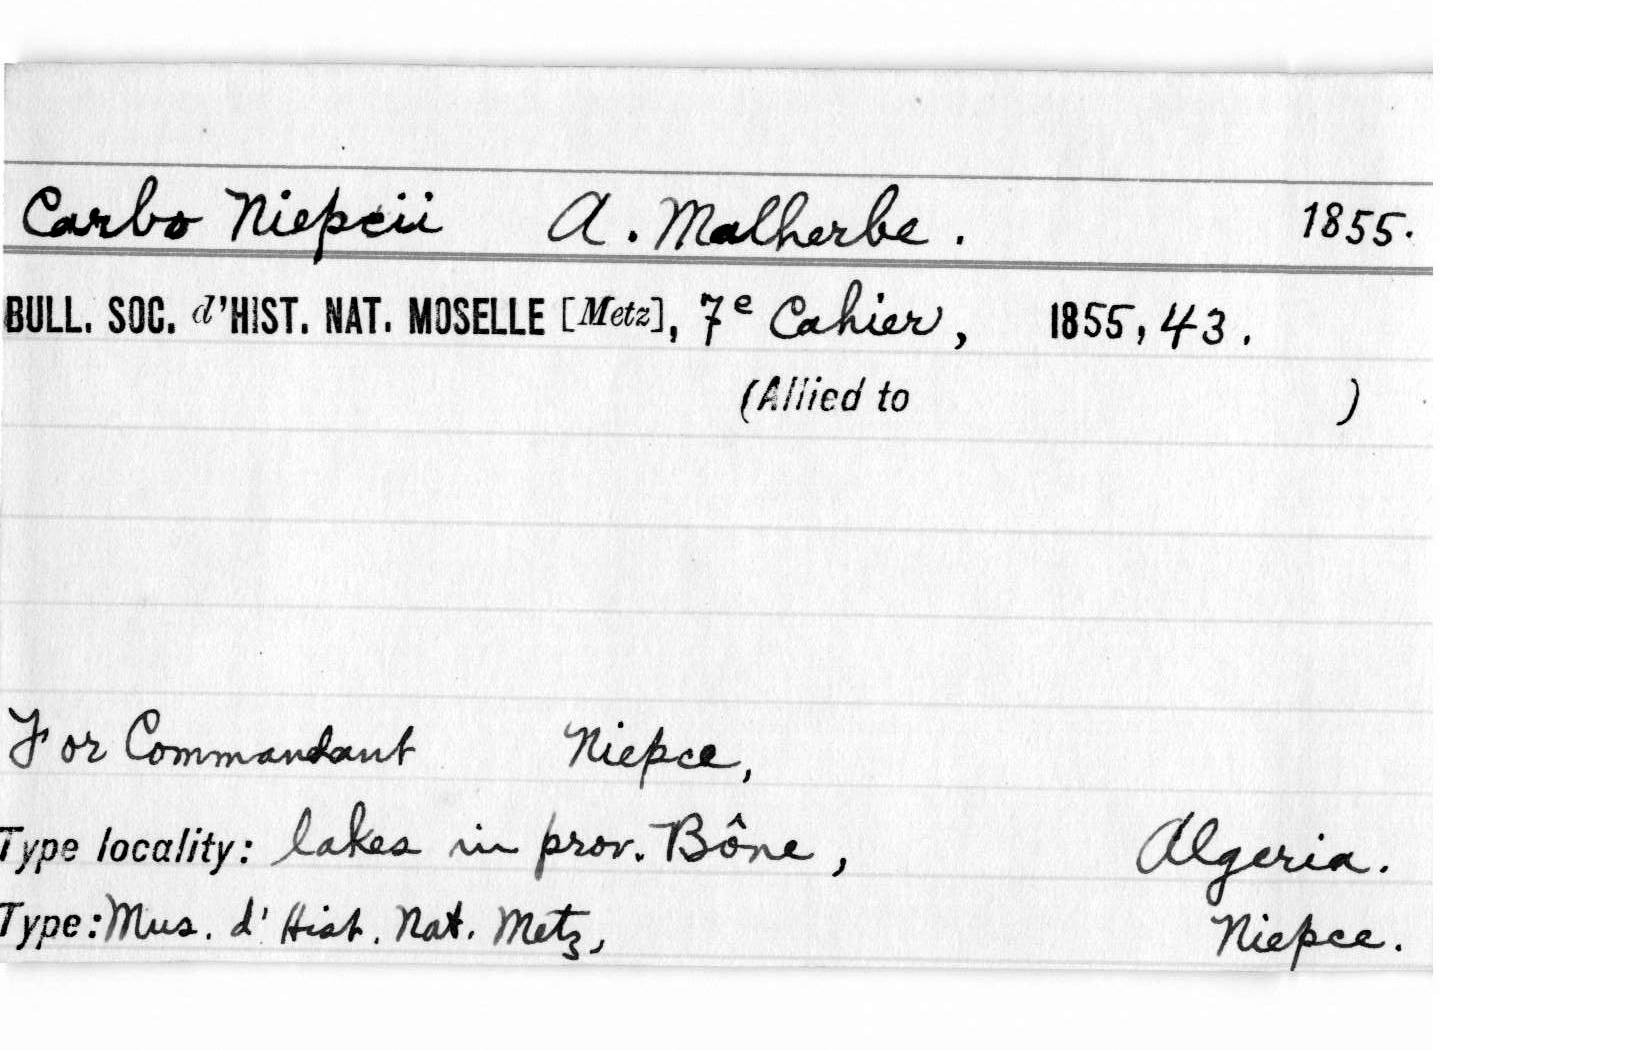 Carbo Niepcii A. Malherbe. 1855.
BULL. SOC. d'HIST. NAT. MOSELLE [Metz], 7e Cahier, 1855, 43.
(Allied to )
For Commandant Niepce,
Type locality: lakes in prov. Bône, Algeria.
Type: Mus. d' Hist. Nat. Metz, Niepce.